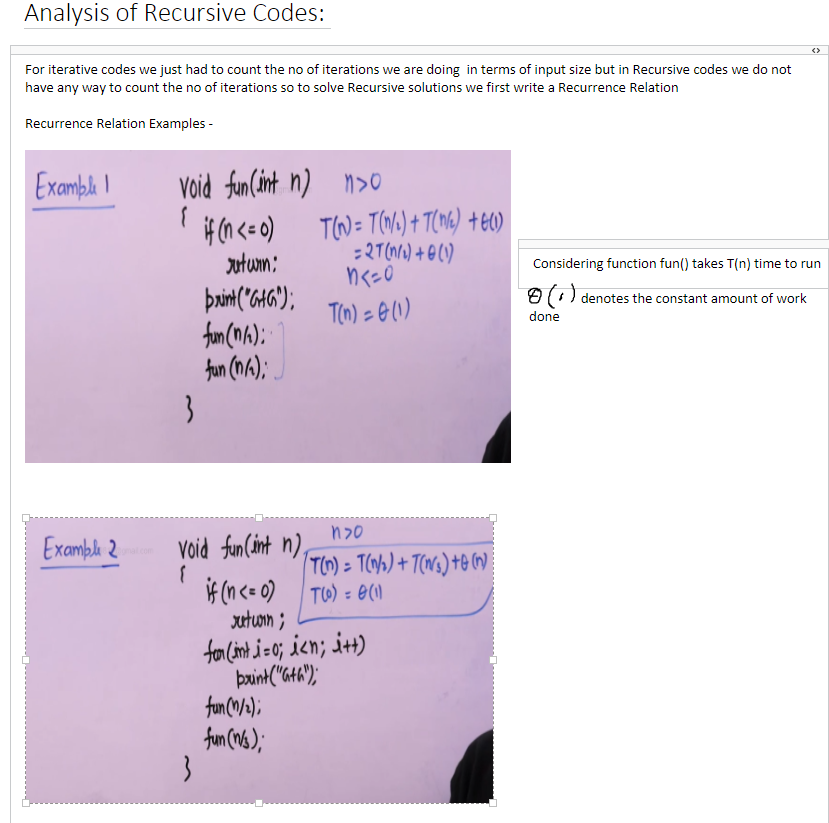 Analysis of Recursive Codes:
For iterative codes we just had to count the no of iterations we are doing in terms of input size but in Recursive codes we do not
have any way to count the no of iterations so to solve Recursive solutions we first write a Recurrence Relation
Recurrence Relation Examples -
Example 1
void fun(int n)
{
if (n <= 0)
return;
print("GfG");
fun(n/2);
fun(n/2);
}
n>0
T(n) = T(n/2) + T(n/2) + θ(1)
= 2T(n/2) + θ(1)
n<=0
T(n) = θ(1)
Considering function fun() takes T(n) time to run
θ(1) denotes the constant amount of work
done
Example 2
void fun(int n)
{
if (n <= 0)
return;
for(int i=0; i<n; i++)
print("GfG");
fun(n/2);
fun(n/3);
}
n>0
T(n) = T(n/2) + T(n/3) + θ(n)
T(0) = θ(1)